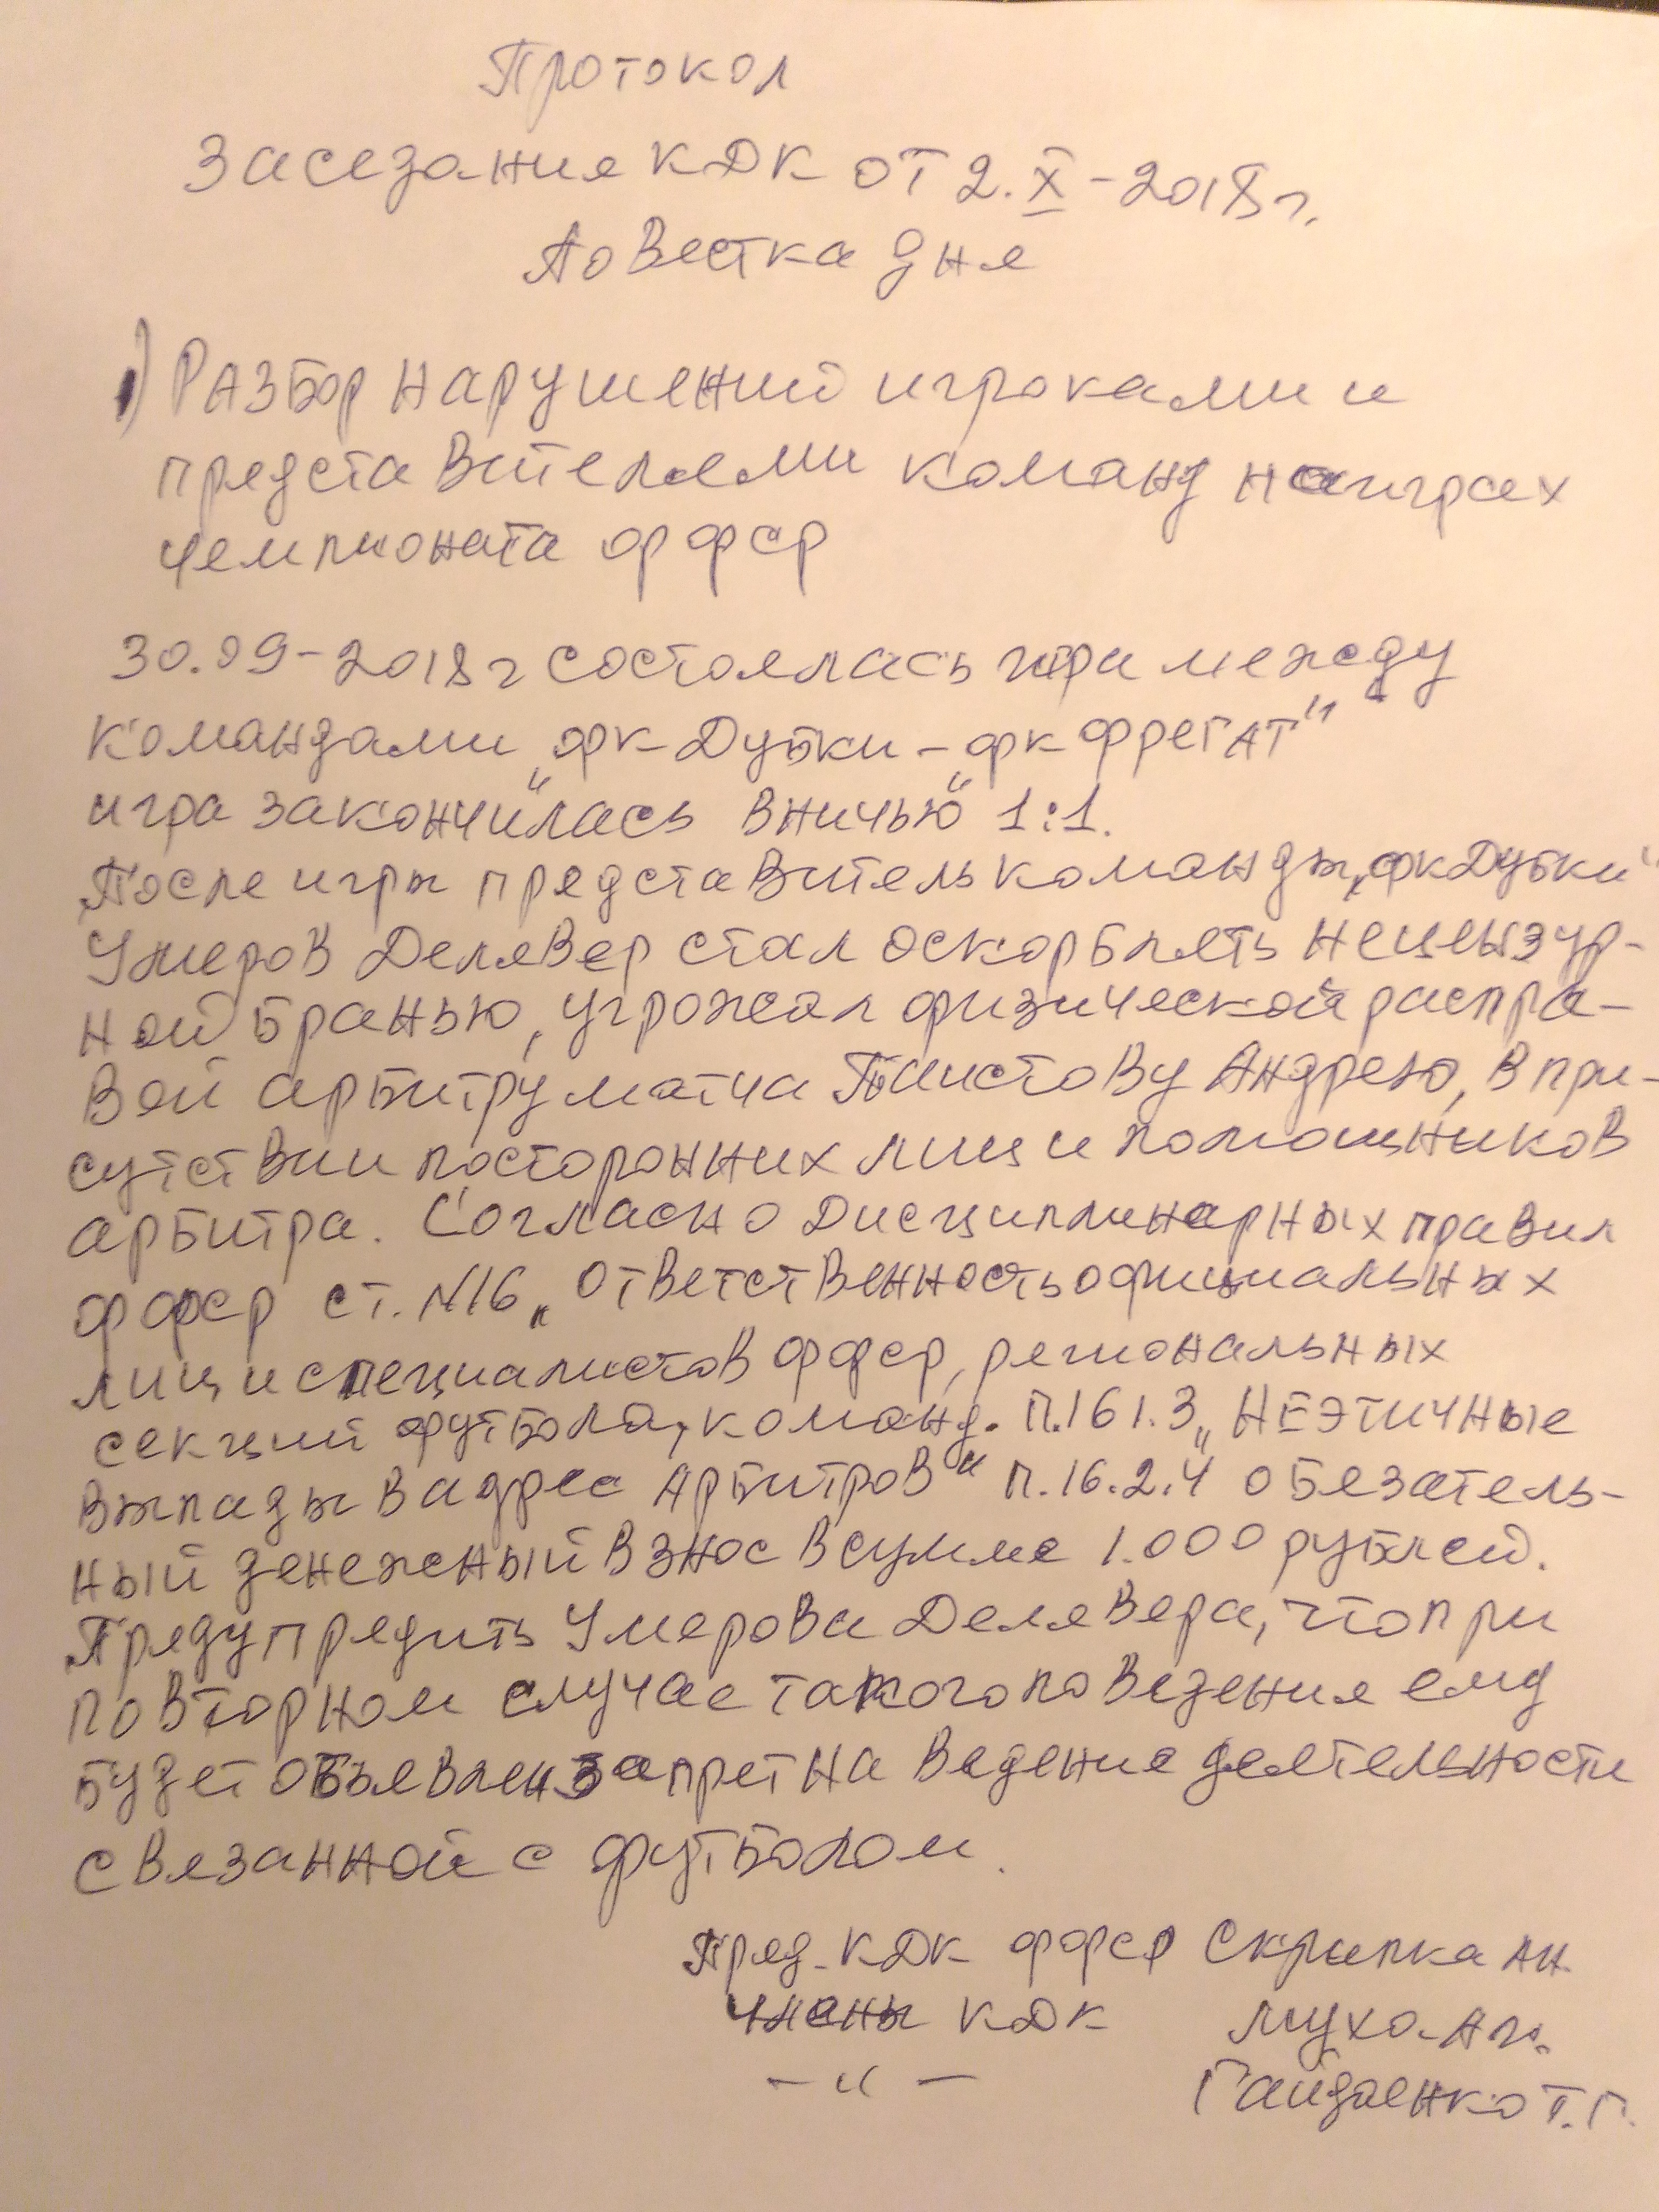 Протокол
Заседания КДК от 2.X-2018г.
Повестка дня
1) Разбор нарушений игроками и
представителями команд на играх
чемпионата ФФСР
30.09-2018г состоялась игра между
командами „ФК Дубки - ФК Фрегат"
игра закончилась „вничью" 1:1.
После игры представитель команды „ФК Дубки"
Умеров Делявер стал оскорблять нецензур-
ной бранью, угрожал физической распра-
вой арбитру матча Андрею, в при-
сутствии посторонних лиц и помощников
арбитра. Согласно Дисциплинарных правил
ФФСР ст. N16 „Ответственность официальных
лиц и специалистов ФФСР, региональных
секций футбола, команд. п.161.3 „Неэтичные
выпады в адрес арбитров" п.16.2.4 обязатель-
ный денежный взнос в сумме 1.000 рублей.
Предупредить Умерова Делявера, что при
повторном случае такого поведения ему
будет объявлен запрет на ведение деятельности
связанной с футболом.
Пред. КДК ФФСР Скрипка АН.
члены КДК Мухо
- " - Гайдаенко Т.Г.